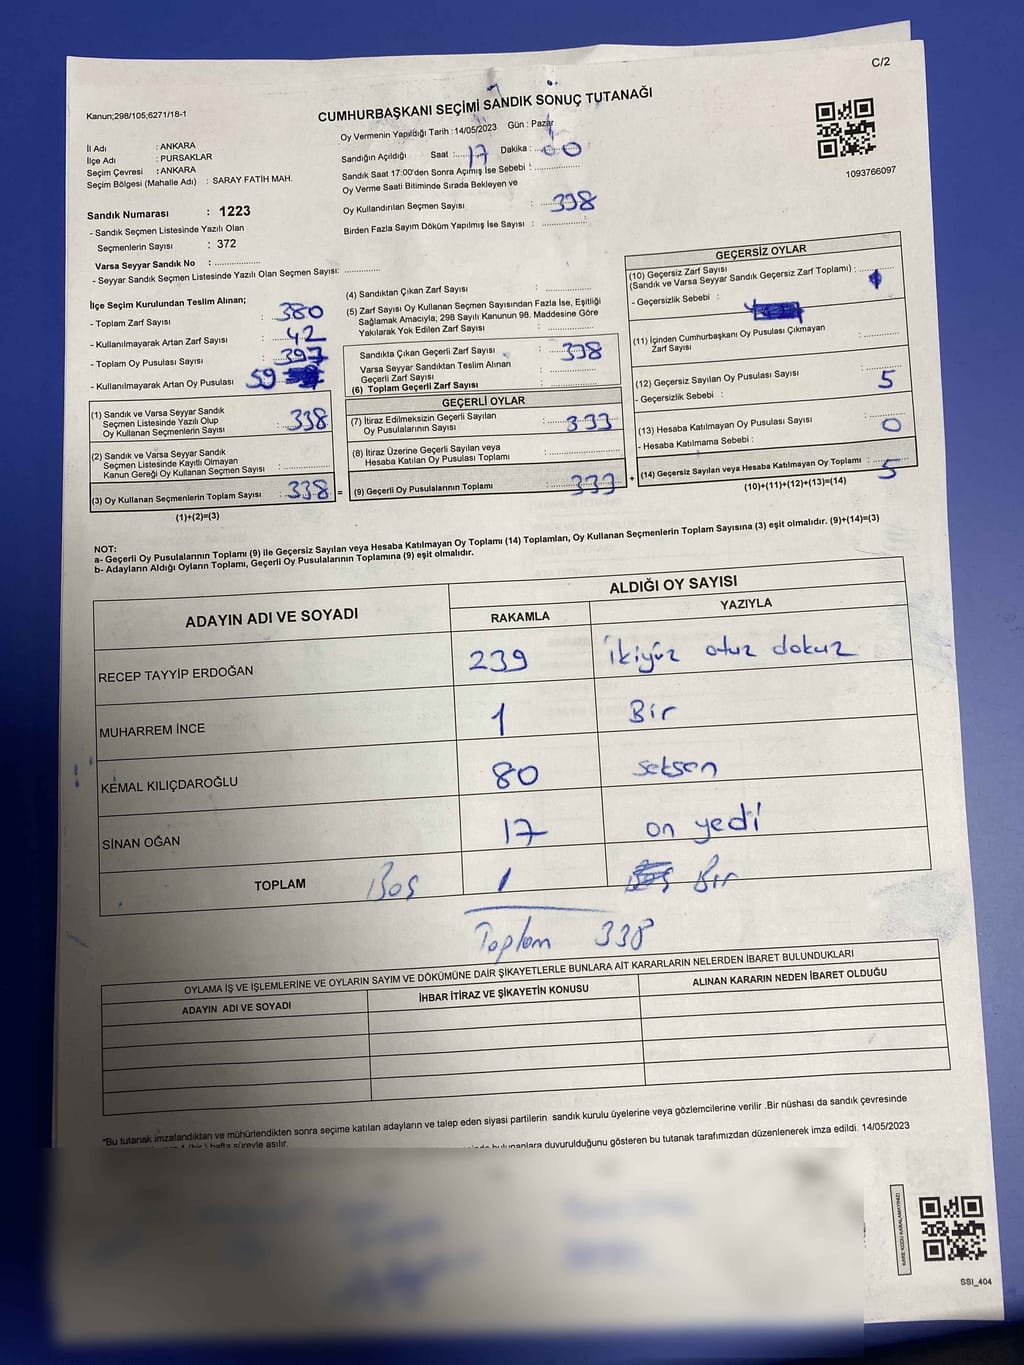 C/2
Kanun;298/105;6271/18-1
CUMHURBAŞKANI SEÇİMİ SANDIK SONUÇ TUTANAĞI
Oy Vermenin Yapıldığı Tarih : 14/05/2023 Gün : Pazar
İl Adı : ANKARA
İlçe Adı : PURSAKLAR
Seçim Çevresi : ANKARA
Seçim Bölgesi (Mahalle Adı) : SARAY FATİH MAH.
Sandığın Açıldığı Saat : 17 Dakika : 00
Sandık Saat 17:00'den Sonra Açılmış İse Sebebi :
Oy Verme Saati Bitiminde Sırada Bekleyen ve
Oy Kullandırılan Seçmen Sayısı : 338
Birden Fazla Sayım Döküm Yapılmış İse Sayısı :
1093766097
Sandık Numarası : 1223
- Sandık Seçmen Listesinde Yazılı Olan
Seçmenlerin Sayısı : 372
Varsa Seyyar Sandık No :
- Seyyar Sandık Seçmen Listesinde Yazılı Olan Seçmen Sayısı:
İlçe Seçim Kurulundan Teslim Alınan;
- Toplam Zarf Sayısı : 380
- Kullanılmayarak Artan Zarf Sayısı : 42
- Toplam Oy Pusulası Sayısı : 397
- Kullanılmayarak Artan Oy Pusulası 59
(1) Sandık ve Varsa Seyyar Sandık
Seçmen Listesinde Yazılı Olup
Oy Kullanan Seçmenlerin Sayısı : 338
(2) Sandık ve Varsa Seyyar Sandık
Seçmen Listesinde Kayıtlı Olmayan
Kanun Gereği Oy Kullanan Seçmen Sayısı :
(3) Oy Kullanan Seçmenlerin Toplam Sayısı : 338 =
(1)+(2)=(3)
(4) Sandıktan Çıkan Zarf Sayısı :
(5) Zarf Sayısı Oy Kullanan Seçmen Sayısından Fazla İse, Eşitliği
Sağlamak Amacıyla; 298 Sayılı Kanunun 98. Maddesine Göre
Yakılarak Yok Edilen Zarf Sayısı :
Sandıkta Çıkan Geçerli Zarf Sayısı : 338
Varsa Seyyar Sandıktan Teslim Alınan
Geçerli Zarf Sayısı :
(6) Toplam Geçerli Zarf Sayısı :
GEÇERLİ OYLAR
(7) İtiraz Edilmeksizin Geçerli Sayılan
Oy Pusulalarının Sayısı : 333
(8) İtiraz Üzerine Geçerli Sayılan veya
Hesaba Katılan Oy Pusulası Toplamı :
(9) Geçerli Oy Pusulalarının Toplamı : 333 +
GEÇERSİZ OYLAR
(10) Geçersiz Zarf Sayısı
(Sandık ve Varsa Seyyar Sandık Geçersiz Zarf Toplamı) :
- Geçersizlik Sebebi :
(11) İçinden Cumhurbaşkanı Oy Pusulası Çıkmayan
Zarf Sayısı :
(12) Geçersiz Sayılan Oy Pusulası Sayısı : 5
- Geçersizlik Sebebi :
(13) Hesaba Katılmayan Oy Pusulası Sayısı : 0
- Hesaba Katılmama Sebebi :
(14) Geçersiz Sayılan veya Hesaba Katılmayan Oy Toplamı : 5
(10)+(11)+(12)+(13)=(14)
NOT:
a- Geçerli Oy Pusulalarının Toplamı (9) ile Geçersiz Sayılan veya Hesaba Katılmayan Oy Toplamı (14) Toplamları, Oy Kullanan Seçmenlerin Toplam Sayısına (3) eşit olmalıdır. (9)+(14)=(3)
b- Adayların Aldığı Oyların Toplamı, Geçerli Oy Pusulalarının Toplamına (9) eşit olmalıdır.
ADAYIN ADI VE SOYADI
ALDIĞI OY SAYISI
RAKAMLA YAZIYLA
RECEP TAYYİP ERDOĞAN 239 ikiyüz otuz dokuz
MUHARREM İNCE 1 Bir
KEMAL KILIÇDAROĞLU 80 seksen
SİNAN OĞAN 17 on yedi
TOPLAM Boş 1 Bir
Toplam 338
OYLAMA İŞ VE İŞLEMLERİNE VE OYLARIN SAYIM VE DÖKÜMÜNE DAİR ŞİKAYETLERLE BUNLARA AİT KARARLARIN NELERDEN İBARET BULUNDUKLARI
ADAYIN ADI VE SOYADI İHBAR İTİRAZ VE ŞİKAYETİN KONUSU ALINAN KARARIN NEDEN İBARET OLDUĞU
*Bu tutanak imzalandıktan ve mühürlendikten sonra seçime katılan adayların ve talep eden siyasi partilerin sandık kurulu üyelerine veya gözlemcilerine verilir .Bir nüshası da sandık çevresinde
hafta süreyle asılır. bulunanlara duyurulduğunu gösteren bu tutanak tarafımızdan düzenlenerek imza edildi. 14/05/2023
KARE KODU KARALAMAYINIZ!
SSI_404